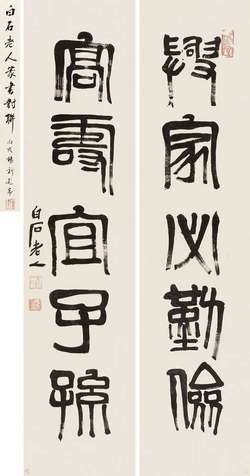 興家必勤儉
高壽宜子孫
白石老人
白石老人篆書對聯